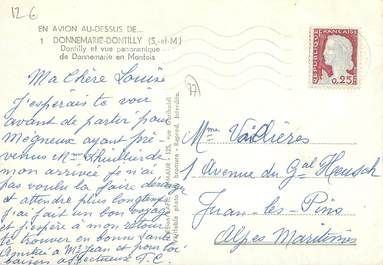 12-6
EN AVION AU-DESSUS DE...
1 DONNEMARIE-DONTILLY (S.-et-M.)
Dontilly et vue panoramique
de Donnemarie en Montois
Ma Chère Louise
J'espérais te voir
avant de partir pour
Mégneux ayant pré-
venus Mme
mon arrivée je n'ai
pas voulu la faire déranger
et attendre plus longtemps
j'ai fait un bon voyage
et j'espère à mon retour
te trouver en bonne santé
Amitiés à Mr Jean et pour toi
baisers affectueux T. C.
77
REPUBLIQUE FRANÇAISE
0,25
POSTES
Mme Vallières
1 Avenue du Gal Heusch
Juan-les-Pins
Alpes Maritimes